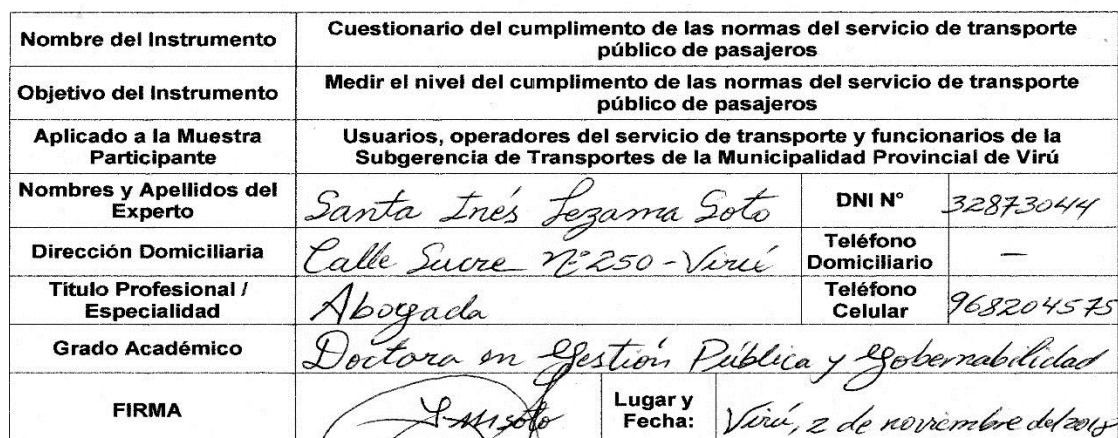 Nombre del Instrumento
Cuestionario del cumplimento de las normas del servicio de transporte
público de pasajeros
Objetivo del Instrumento
Medir el nivel del cumplimento de las normas del servicio de transporte
público de pasajeros
Aplicado a la Muestra
Participante
Usuarios, operadores del servicio de transporte y funcionarios de la
Subgerencia de Transportes de la Municipalidad Provincial de Virú
Nombres y Apellidos del
Experto
Santa Inés Lezama Soto
DNI N°
32873044
Dirección Domiciliaria
Calle Sucre N° 250 - Virú
Teléfono
Domiciliario
—
Título Profesional /
Especialidad
Abogada
Teléfono
Celular
968204575
Grado Académico
Doctora en Gestión Pública y Gobernabilidad
FIRMA
Lugar y
Fecha:
Virú, 2 de noviembre del 2018